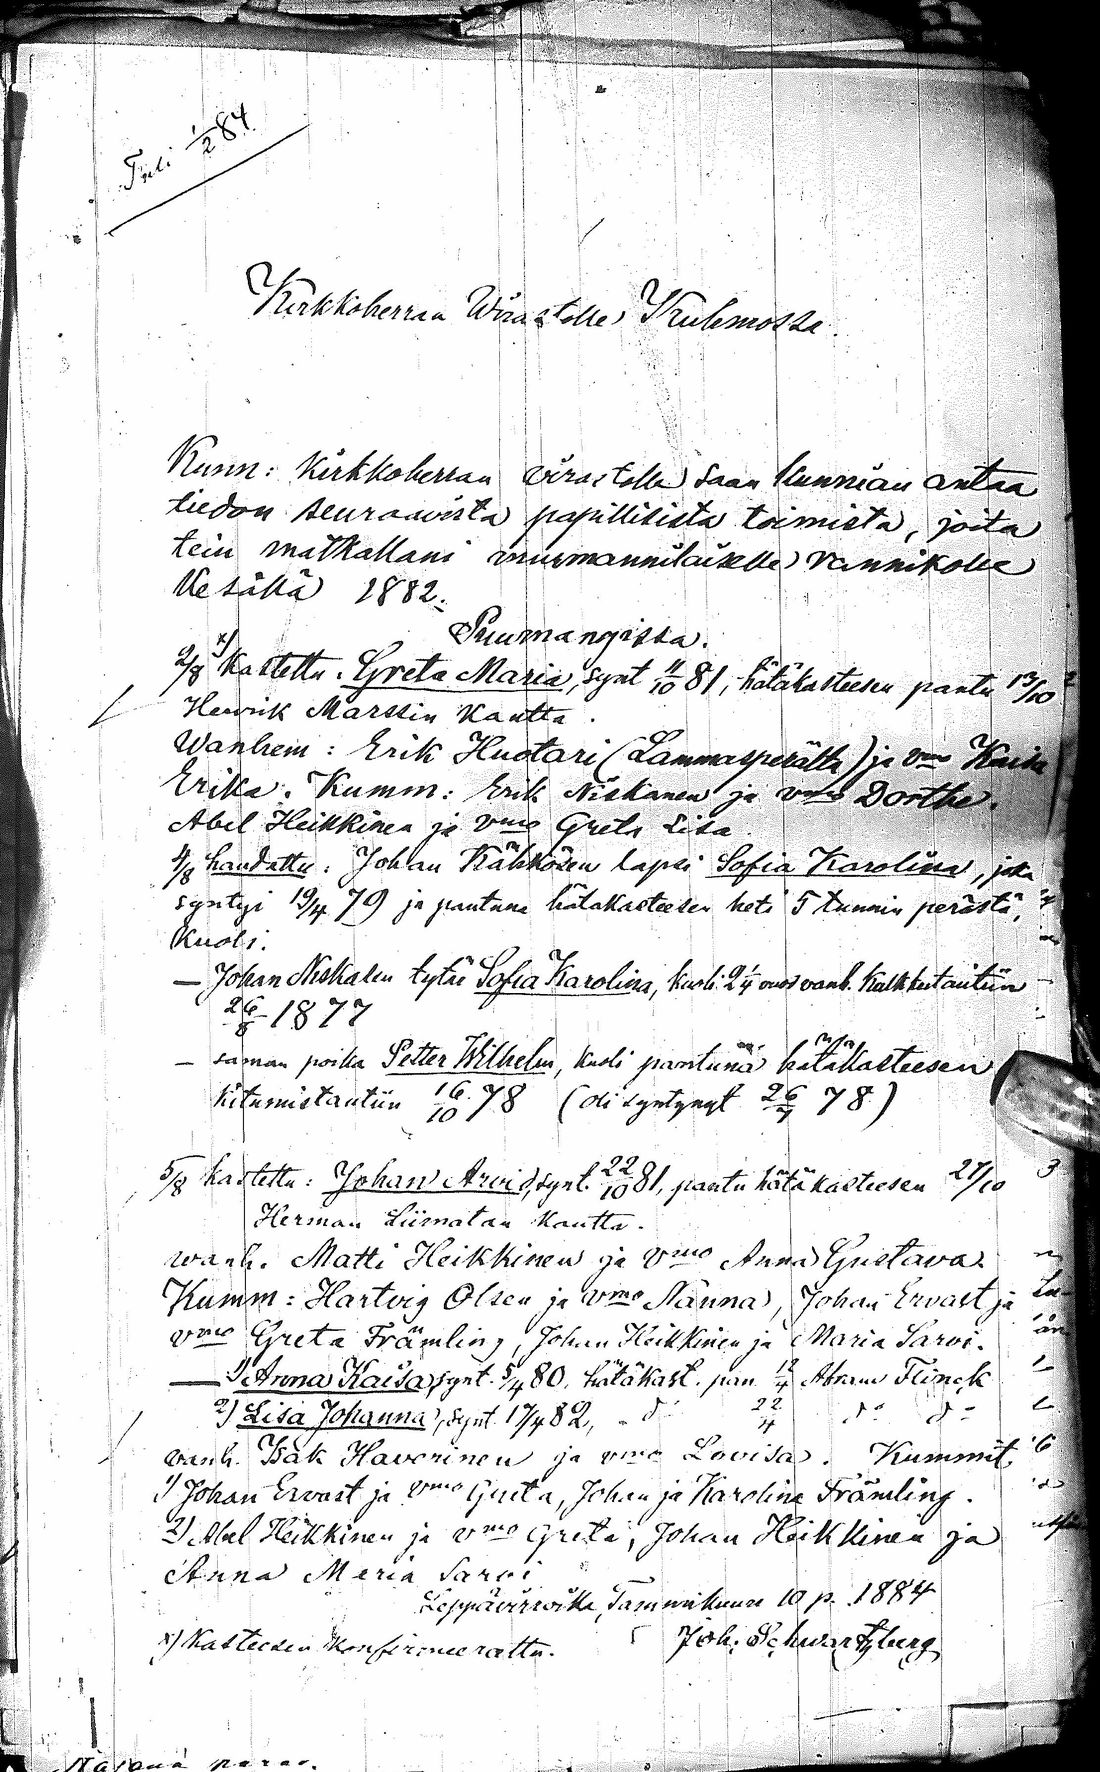 Tuli 1/2 84.
Kirkkoherran Wirastolle Kuhmossa.
Kunn: Kirkkoherran virastolle saan kunnian antaa
tiedon seuraavista papillisista toimista, joita
tein matkallani muurmannilaiselle rannikolle
Kesällä 1882.
Puumangissa.
2/8 x) Kastettu. Greta Maria, synt 11/10 81, hätäkasteesen pantu 13/10
Henrik Marssin kautta.
Wanhem: Erik Huotari (Lammasperältä) ja vmo Kaisa
Erika. Kumm: Erik Niskanen ja vmo Dorthe.
Abel Heikkinen ja vmo Greta Lisa
4/8 haudattu: Johan Kähkösen lapsi Sofia Karolina, joka
syntyi 19/4 79 ja pantuna hätäkasteesen heti 5 tunnin perästä,
kuoli.
— Johan Niskasen tytär Sofia Karolina, kuoli 2 1/4 vuos vanh. Kalkkutautiin
26/8 1877
— saman poika Petter Wilhelm, kuoli pantuna hätäkasteesen
kitumistautiin 16/10 78 (oli syntynyt 26/7 78.)
5/8 kastettu: Johan Arvid, synt. 22/10 81, pantu hätäkasteesen 27/10
Herman Liimatan kautta.
wanh. Matti Heikkinen ja vmo Anna Gustava.
Kumm: Hartvig Olsen ja vmo Nanna, Johan Ervast ja
vmo Greta Främling, Johan Heikkinen ja Maria Sarvi.
— 1) Anna Kaisa, synt. 5/4 80. hätäkast. pan. 12/4 Abram Flinck
2) Lisa Johanna, synt 17/4 82, d:o 22/4 d:o d:o
vanh. Isak Haverinen ja vmo Lovisa. Kummit.
1) Johan Ervast ja vmo Greta, Johan ja Karolina Främling.
2) Abel Heikkinen ja vmo Greta, Johan Heikkinen ja
Anna Maria Sarvi
Leppävirroilla, Tammikuun 10 p. 1884
x) Kasteesen konfirmeerattu. Joh: Schwartzberg